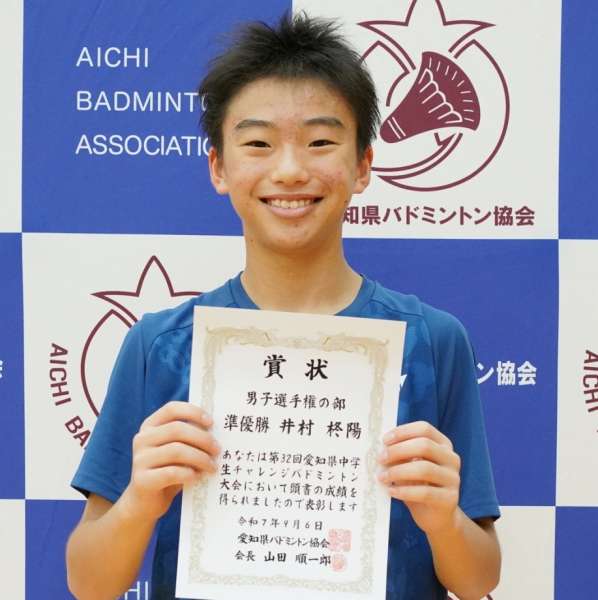 AICHI
BADMINTO
ASSOCIAT
知県バドミントン協会
AICHI BA
ン協会
AICHI
賞状
男子選手権の部
準優勝 井村 柊陽
あなたは第32回愛知県中学
生チャレンジバドミントン
大会において頭書の成績を
得られましたので表彰します
令和7年9月6日
愛知県バドミントン協会
会長 山田 順一郎